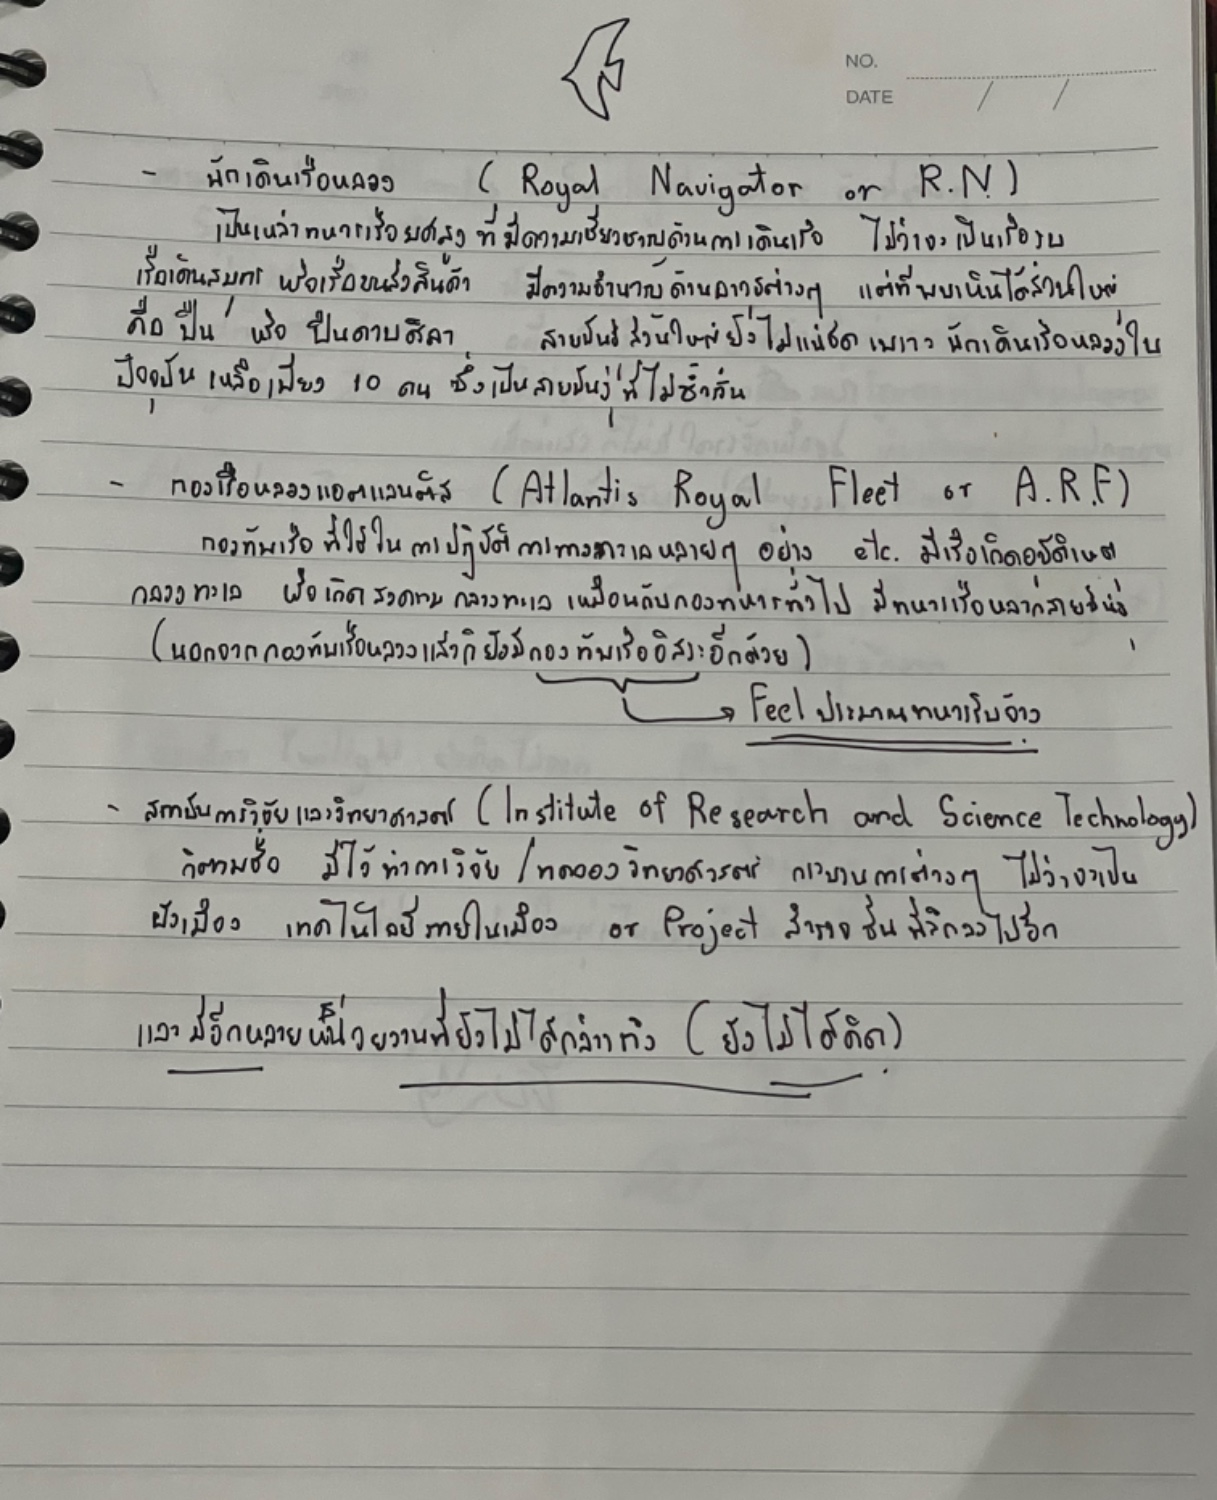 NO.
DATE / /
- นักเดินเรือหลวง (Royal Navigator or R.N.)
เป็นเหล่าทหารเรือยศสูง ที่มีความเชี่ยวชาญด้านการเดินเรือ ไม่ว่าจะเป็นเรือรบ
เรือเดินสมุทร หรือเรือขนส่งสินค้า มีความชำนาญด้านอาวุธต่างๆ แต่ที่พบเห็นได้ส่วนใหญ่
คือ ปืน หรือ ปืนดาบศิลา สายพันธุ์ส่วนใหญ่ยังไม่แน่ชัด เพราะ นักเดินเรือหลวงใน
ปัจจุบัน เหลือเพียง 10 คน ซึ่งเป็นสายพันธุ์ที่ไม่ซ้ำกัน
- กองเรือหลวงแอตแลนติส (Atlantis Royal Fleet or A.R.F)
กองทัพเรือที่ใช้ในการปฏิบัติการทางทะเลหลายๆ อย่าง etc. มีเรือเกิดอุบัติเหตุ
กลางทะเล หรือเกิดสงครามกลางทะเล เหมือนกับกองทหารทั่วไป มีทหารเรือหลากสายพันธุ์
(นอกจากกองทัพเรือหลวงแล้วก็ยังมีกองทัพเรืออิสระอีกด้วย)
Feel ประมาณทหารรับจ้าง
- สถาบันการวิจัยและวิทยาศาสตร์ (Institute of Research and Science Technology)
ก็ตามชื่อ มีไว้ทำการวิจัย / ทดลองวิทยาศาสตร์ กระบวนการต่างๆ ไม่ว่าจะเป็น
ผังเมือง เทคโนโลยีภายในเมือง or Project สำรวจชั้นที่ลึกลงไปอีก
และมีอีกหลายหน่วยงานที่ยังไม่ได้กล่าวถึง (ยังไม่ได้คิด)